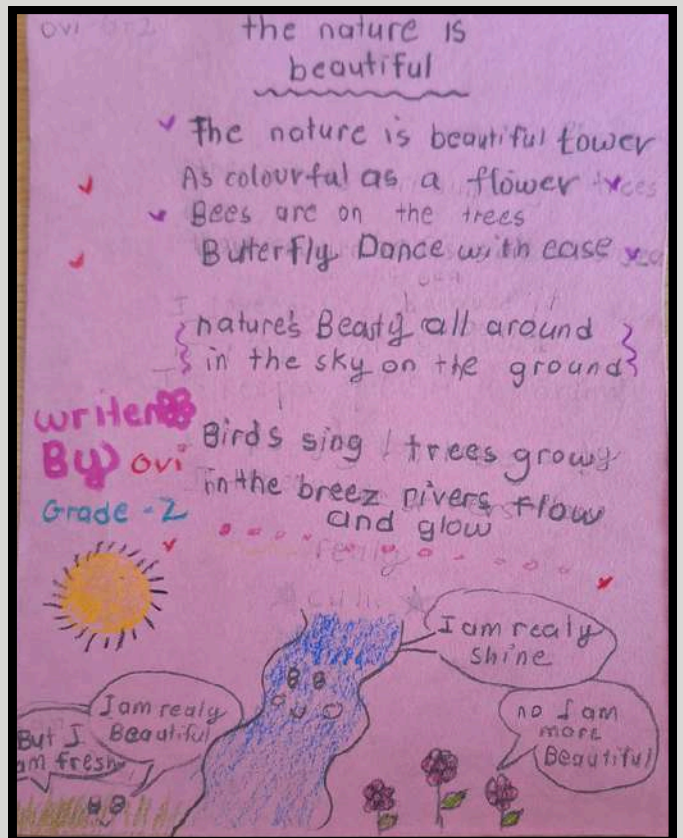 Ovi Gr2
the nature is
beautiful
The nature is beautiful tower
As colourful as a flower trees
Bees are on the trees
Buterfly Dance with ease
nature's Beauty all around
in the sky on the ground
Writen
By Ovi
Grade - 2
Birds sing ! trees grow
in the breez rivers flow
and glow
realy
I am realy
shine
I am realy
Beautiful
But I
am fresh
no I am
more
Beautiful